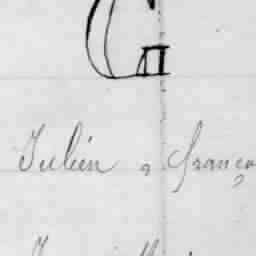 G
Julien , franço